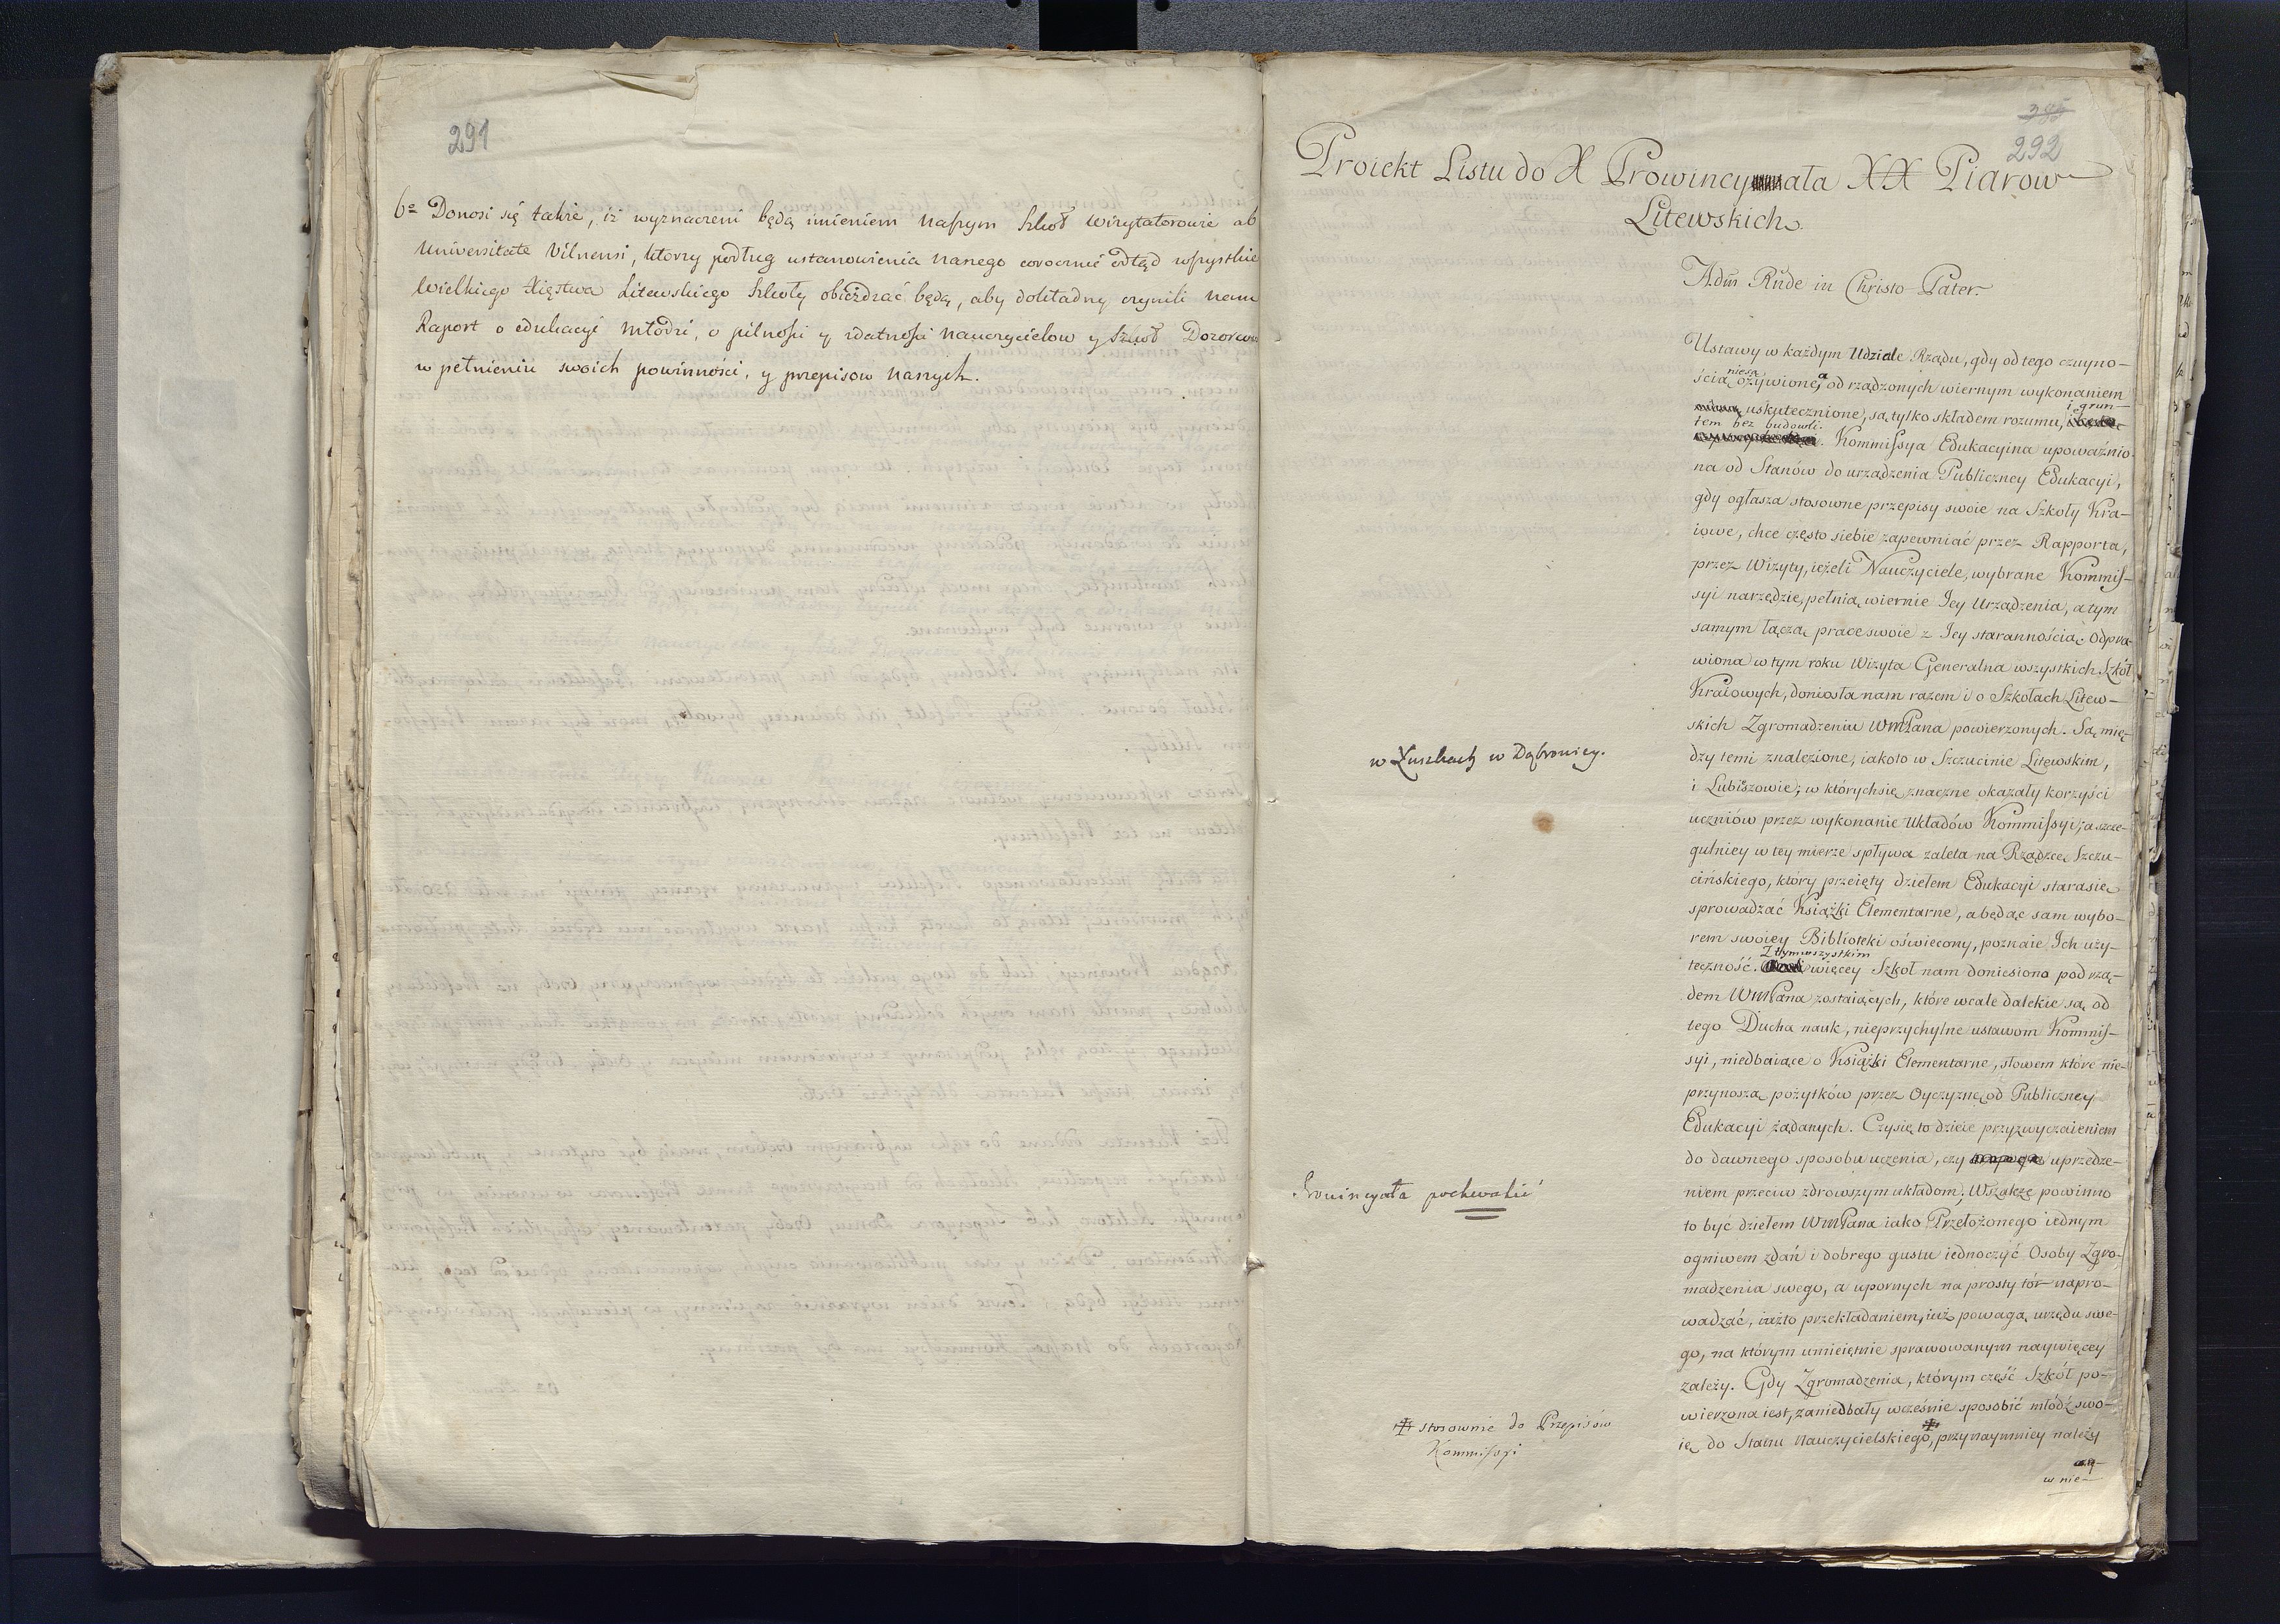 291
6º Donosi się także, iż wyznaczeni będą imieniem naszym Szkoł Wizytatorowie ab
Universitate Vilnensi, ktorzy podług ustanowienia naszego corocznie odtąd wszystkie
Wielkiego Xięstwa Litewskiego Szkoły obieżdżać będą, aby dokładny czynili nam
Raport o edukacyi młodzi, o pilności y zdatności nauczycielow y Szkoł Dozorcow
w pełnieniu swoich powinności, y przepisow naszych.
385
292
Proiekt Listu do X Prowincyała XX Piarow
Litewskich.
Adm̃ Rñde in Christo Pater.
Ustawy w każdym Udziale Rządu, gdy od tego czuyno-
ścią nie są ożywione, a od rządzonych wiernym wykonaniem
uskutecznione, są tylko składem rozumu, i grun-
tem bez budowli. Kommissya Edukacyina upoważnio-
na od Stanów do urządzenia Publiczney Edukacyi,
gdy ogłasza stosowne przepisy swoie na Szkoły Kra-
iowe, chce często siebie zapewniać przez Rapporta,
przez Wizyty, ieżeli Nauczyciele, wybrane Kommis-
syi narzędzie, pełnią wiernie Iey Urządzenia, a tym
samym łączą prace swoie z Iey starannością. Odpra-
wiona w tym roku Wizyta Generalna wszystkich Szkół
Kraiowych, doniosła nam razem i o Szkołach Litew-
skich Zgromadzeniu WmPana powierzonych. Są mię-
w Łuszkach w Dąbrowicy.
dzy temi znalezione, iakoto w Szczucinie Litewskim,
i Lubiszowie; w których się znaczne okazały korzyści
uczniów przez wykonanie Układów Kommissyi; a szcze-
gulniey w tey mierze spływa zaleta na Rządzcę Szczu-
cińskiego, który przeięty dziełem Edukacyi stara się
sprowadzać Książki Elementarne, a będąc sam wybo-
rem swoiey Biblioteki oświecony, poznaie Ich uży-
teczność. Z tym wszystkim więcey Szkoł nam doniesiono pod rzą-
dem WmPana zostaiących, które wcale dalekie są od
tego Ducha nauk, nieprzychylne ustawom Kommis-
syi, niedbaiące o Książki Elementarne, słowem które nie-
przynoszą pożytków przez Oyczyznę od Publiczney
Edukacyi żądanych. Czy się to dzieie przyzwyczaieniem
do dawnego sposobu uczenia, czy uprzedze-
Prowincyała pochwalić
niem przeciw zdrowszym układom. Wszakże powinno
to być dziełem WmPana iako Przełożonego iednym
ogniwem zdań i dobrego gustu iednoczyć Osoby Zgro-
madzenia swego, a upornych na prosty tór napro-
wadzać, iużto przekładaniem, iuż powagą urzędu swe-
go, na którym umieiętnie sprawowanym naywięcey
zależy. Gdy Zgromadzenia, którym część Szkół po-
wierzona iest, zaniedbały wcześnie sposobić młódź swo-
ię do Stanu Nauczycielskiego ‡, przynaymniey należy
‡ stosownie do Przepisów
Kommissyi
w nie-